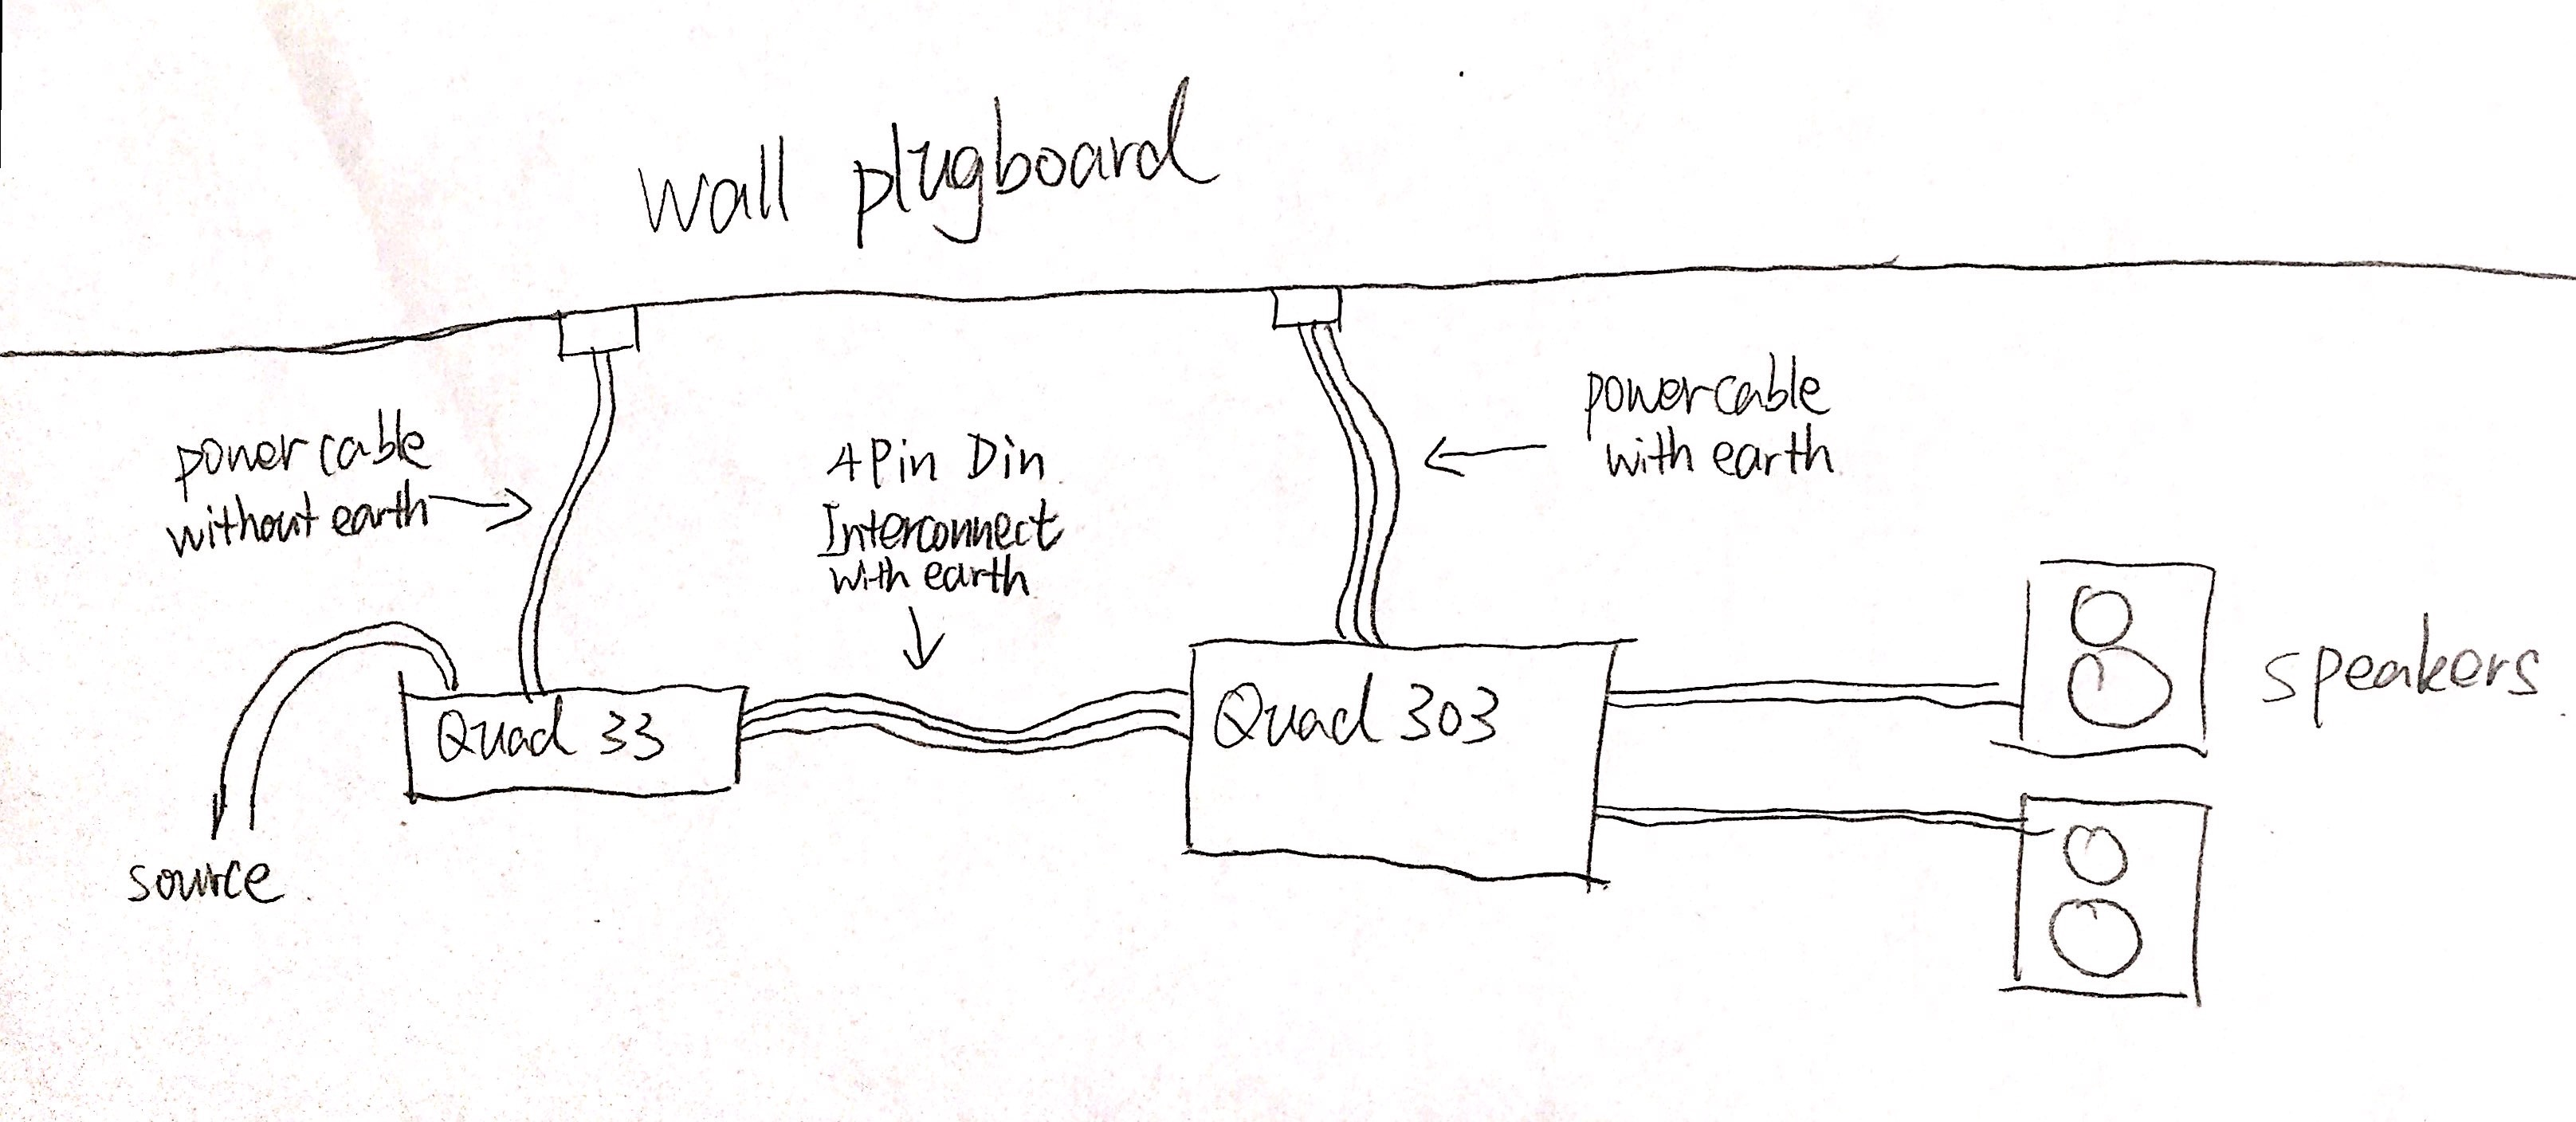 wall plugboard
power cable
without earth
4Pin Din
Interconnect
with earth
power cable
with earth
Quad 33
Quad 303
speakers
source